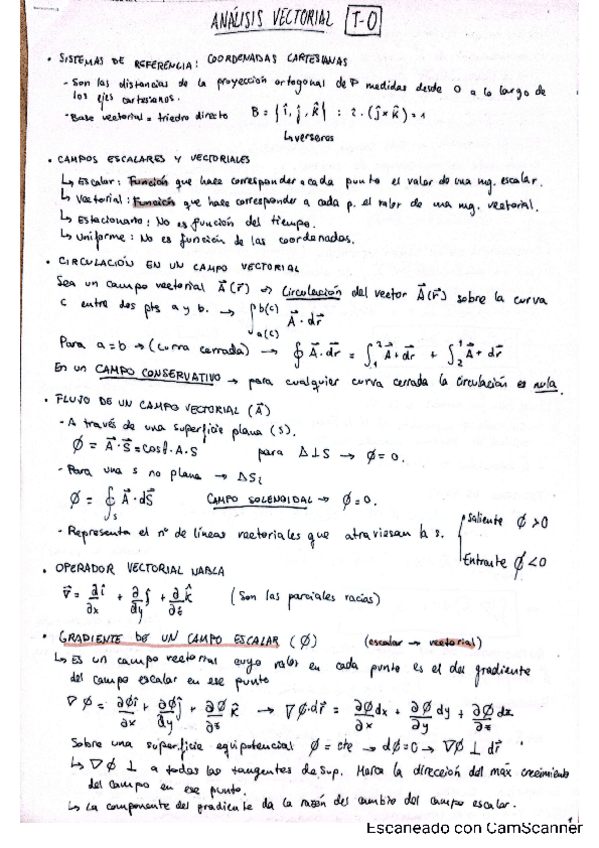 ANÁLISIS VECTORIAL T-0
• SISTEMAS DE REFERENCIA: COORDENADAS CARTESIANAS
- Son las distancias de la proyección ortogonal de P medidas desde O a lo largo de
los ejes cartesianos.
- Base vectorial = triedro directo B = {î, ĵ, k̂} : î · (ĵ × k̂) = 1
↳ versores
• CAMPOS ESCALARES Y VECTORIALES
↳ Escalar: Función que hace corresponder a cada punto el valor de una mg. escalar.
↳ Vectorial: Función que hace corresponder a cada p. el valor de una mg. vectorial.
↳ Estacionario: No es función del tiempo.
↳ Uniforme: No es función de las coordenadas.
• CIRCULACIÓN EN UN CAMPO VECTORIAL
Sea un campo vectorial A⃗(r⃗) ⇒ Circulación del vector A⃗(r⃗) sobre la curva
C entre dos pts a y b. → ∫_a(c)^b(c) A⃗ · dr⃗
Para a = b → (curva cerrada) → ∮ A⃗ · dr⃗ = ∫₁² A⃗ · dr + ∫₂¹ A⃗ · dr⃗
En un CAMPO CONSERVATIVO → para cualquier curva cerrada la circulación es nula.
• FLUJO DE UN CAMPO VECTORIAL (A⃗)
- A través de una superficie plana (S).
Ø = A⃗ · S⃗ = cosθ · A · S para A ⊥ S → Ø = 0.
- Para una s no plana → ΔSᵢ
Ø = ∮_S A⃗ · dS⃗ CAMPO SOLENOIDAL → Ø = 0.
- Representa el nº de líneas vectoriales que atraviesan la s. Saliente Ø > 0
Entrante Ø < 0
• OPERADOR VECTORIAL NABLA
∇⃗ = ∂/∂x î + ∂/∂y ĵ + ∂/∂z k̂ (Son las parciales vacías)
• GRADIENTE DE UN CAMPO ESCALAR (Ø) (escalar → vectorial)
↳ Es un campo vectorial cuyo valor en cada punto es el del gradiente
del campo escalar en ese punto
∇Ø = ∂Ø/∂x î + ∂Ø/∂y ĵ + ∂Ø/∂z k̂ → ∇Ø · dr⃗ = ∂Ø/∂x dx + ∂Ø/∂y dy + ∂Ø/∂z dz
Sobre una superficie equipotencial Ø = cte → dØ = 0 → ∇Ø ⊥ dr⃗
↳ ∇Ø ⊥ a todas las tangentes de sup. Marca la dirección del máx crecimiento
del campo en ese punto.
↳ La componente del gradiente da la razón del cambio del campo escalar.
1
Escaneado con CamScanner